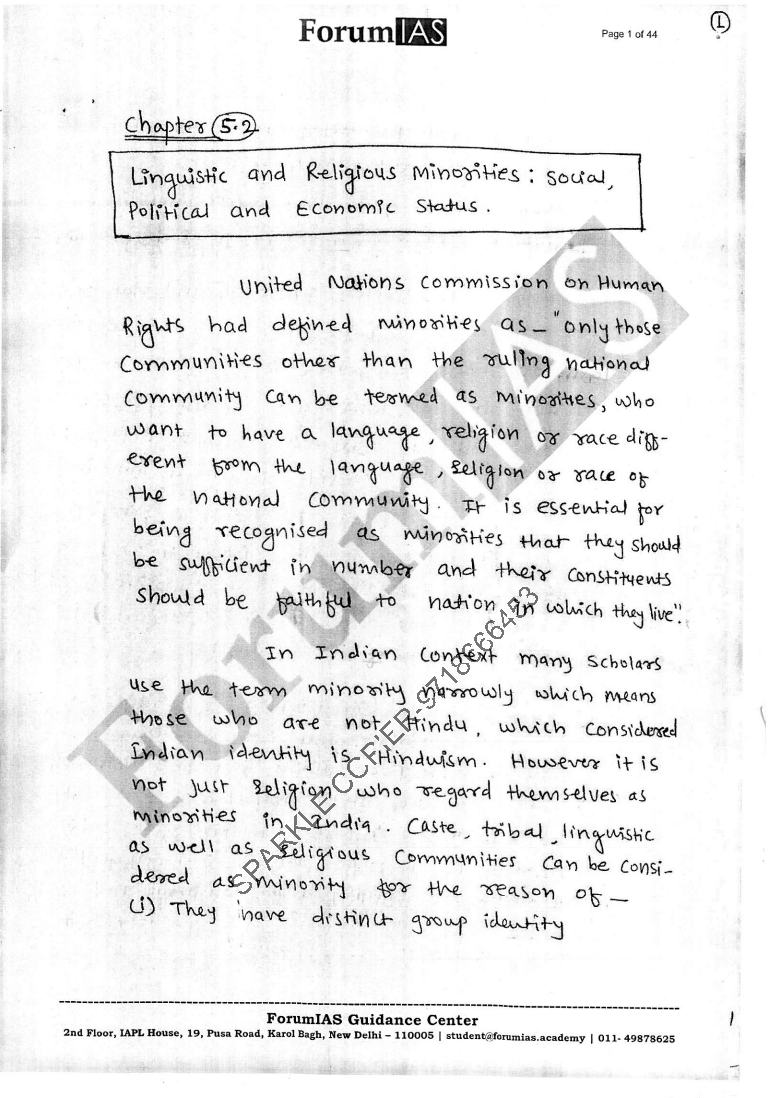 ForumIAS
Page 1 of 44
1
Chapter 5.2
Linguistic and Religious Minorities : Social,
Political and Economic Status.
United Nations Commission on Human
Rights had defined minorities as - "only those
Communities other than the ruling national
Community can be termed as minorities, who
want to have a language, religion or race diff-
erent from the language, religion or race of
the national community. It is essential for
being recognised as minorities that they should
be sufficient in number and their constituents
should be faithful to nation in which they live".
In Indian context many scholars
use the term minority narrowly which means
those who are not Hindu, which considered
Indian identity is Hinduism. However it is
not just religion who regard themselves as
minorities in India. Caste, tribal, linguistic
as well as religious communities can be consi-
dered as minority for the reason of -
(i) They have distinct group identity
ForumIAS
ForumIAS Guidance Center
2nd Floor, IAPL House, 19, Pusa Road, Karol Bagh, New Delhi – 110005 | student@forumias.academy | 011- 49878625